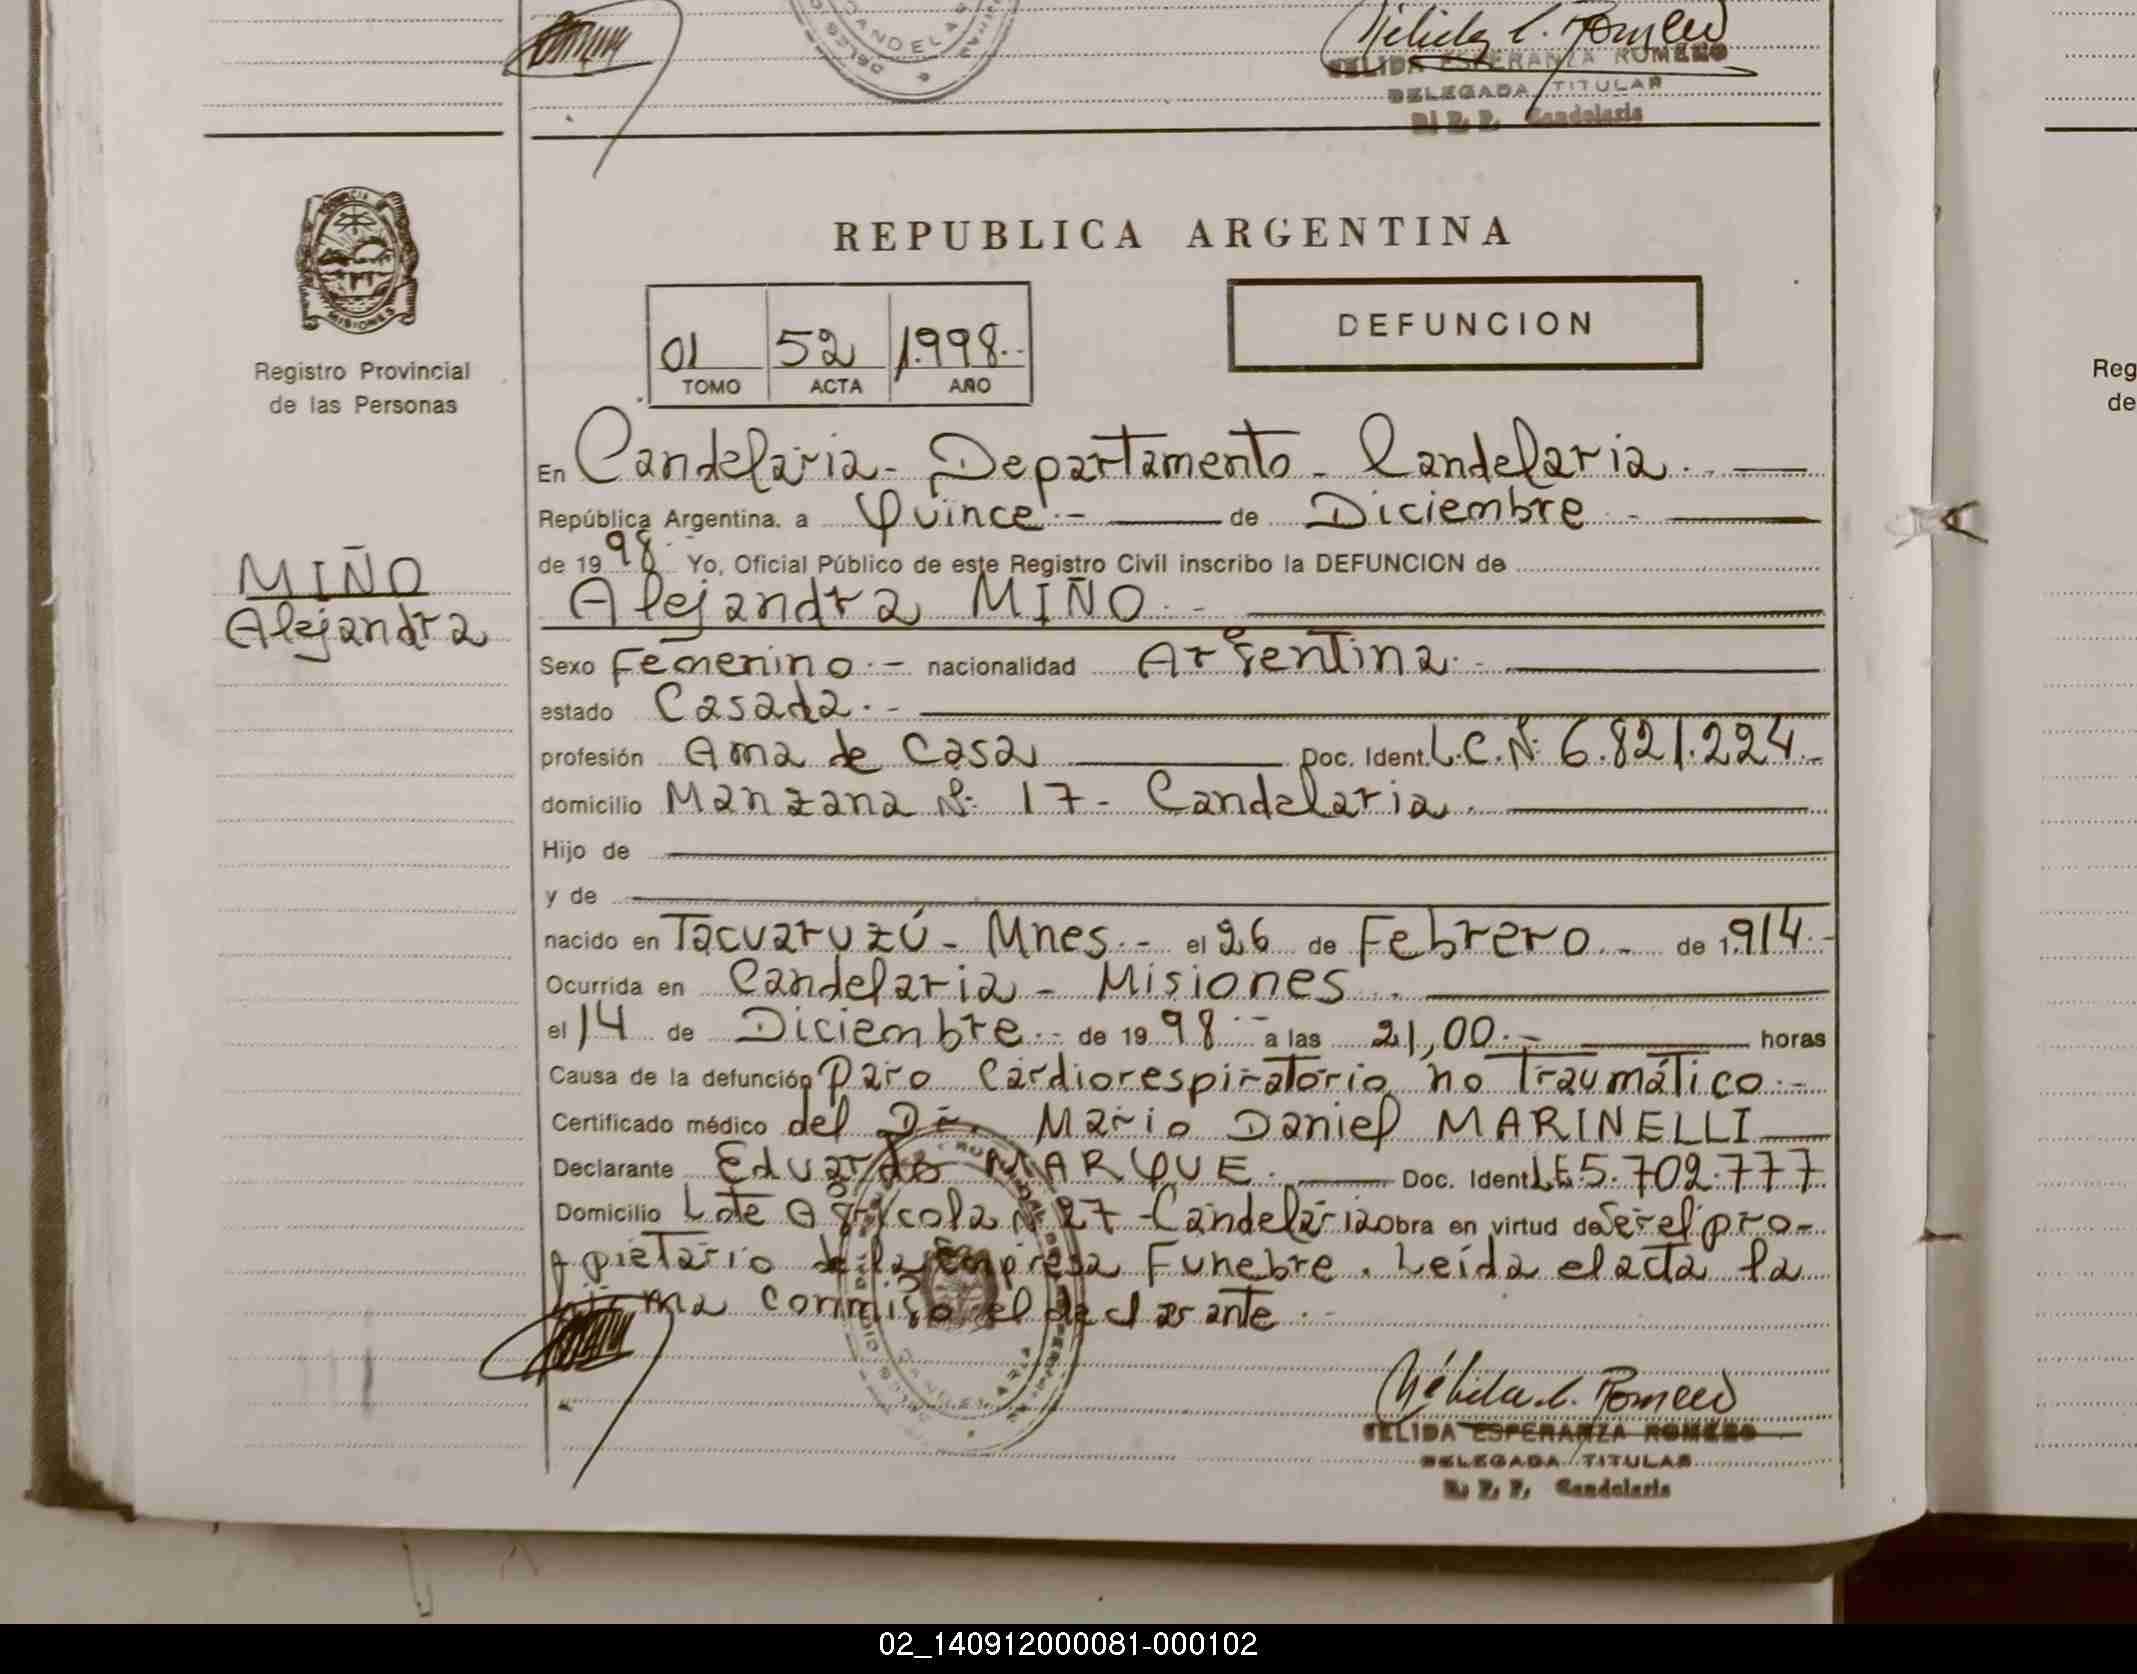 Nélida E. Romero
NELIDA ESPERANZA ROMERO
DELEGADA TITULAR
R. P. P. Candelaria
MISIONES
Registro Provincial
de las Personas
REPUBLICA ARGENTINA
01 52 1.998.-
TOMO ACTA AÑO
DEFUNCION
En Candelaria - Departamento - Candelaria.-
República Argentina, a Quince.- de Diciembre.-
de 1998.- Yo, Oficial Público de este Registro Civil inscribo la DEFUNCION de
Alejandra MIÑO.-
MIÑO
Alejandra
Sexo Femenino.- nacionalidad Argentina.-
estado Casada.-
profesión Ama de Casa Doc. Ident. L.C.Nº 6.821.224.-
domicilio Manzana Nº 17 - Candelaria.
Hijo de
y de
nacido en Tacuaruzú - Mnes.- el 26 de Febrero.- de 1.914.-
Ocurrida en Candelaria - Misiones.
el 14 de Diciembre.- de 1998.- a las 21,00.- horas
Causa de la defunción Paro Cardiorespiratorio no Traumático.-
Certificado médico del Dr. Mario Daniel MARINELLI
Declarante Eduardo MARQUE. Doc. Ident. L.E. 5.702.777
Domicilio Lote Agrícola Nº 27 - Candelaria obra en virtud de Ser el pro-
pietario de la Empresa Funebre. Leída el acta la
firma conmigo el declarante.-
CANDELARIA
Nélida E. Romero
NELIDA ESPERANZA ROMERO
DELEGADA TITULAR
R. P. P. Candelaria
Reg
de
02_140912000081-000102